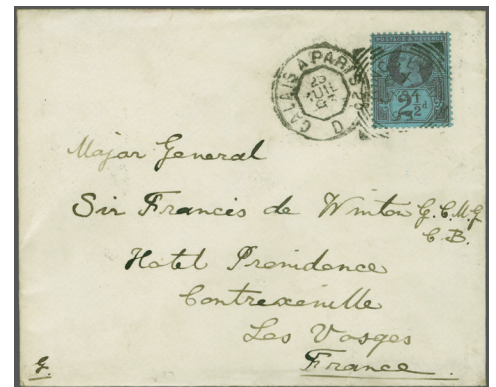 CALAIS A PARIS
25
JUIL
D
POSTAGE & REVENUE
2½d
Major General
Sir Francis de Winton G.C.M.G
C.B.
Hotel Providence
Contrexeville
Les Vosges
France.
G.